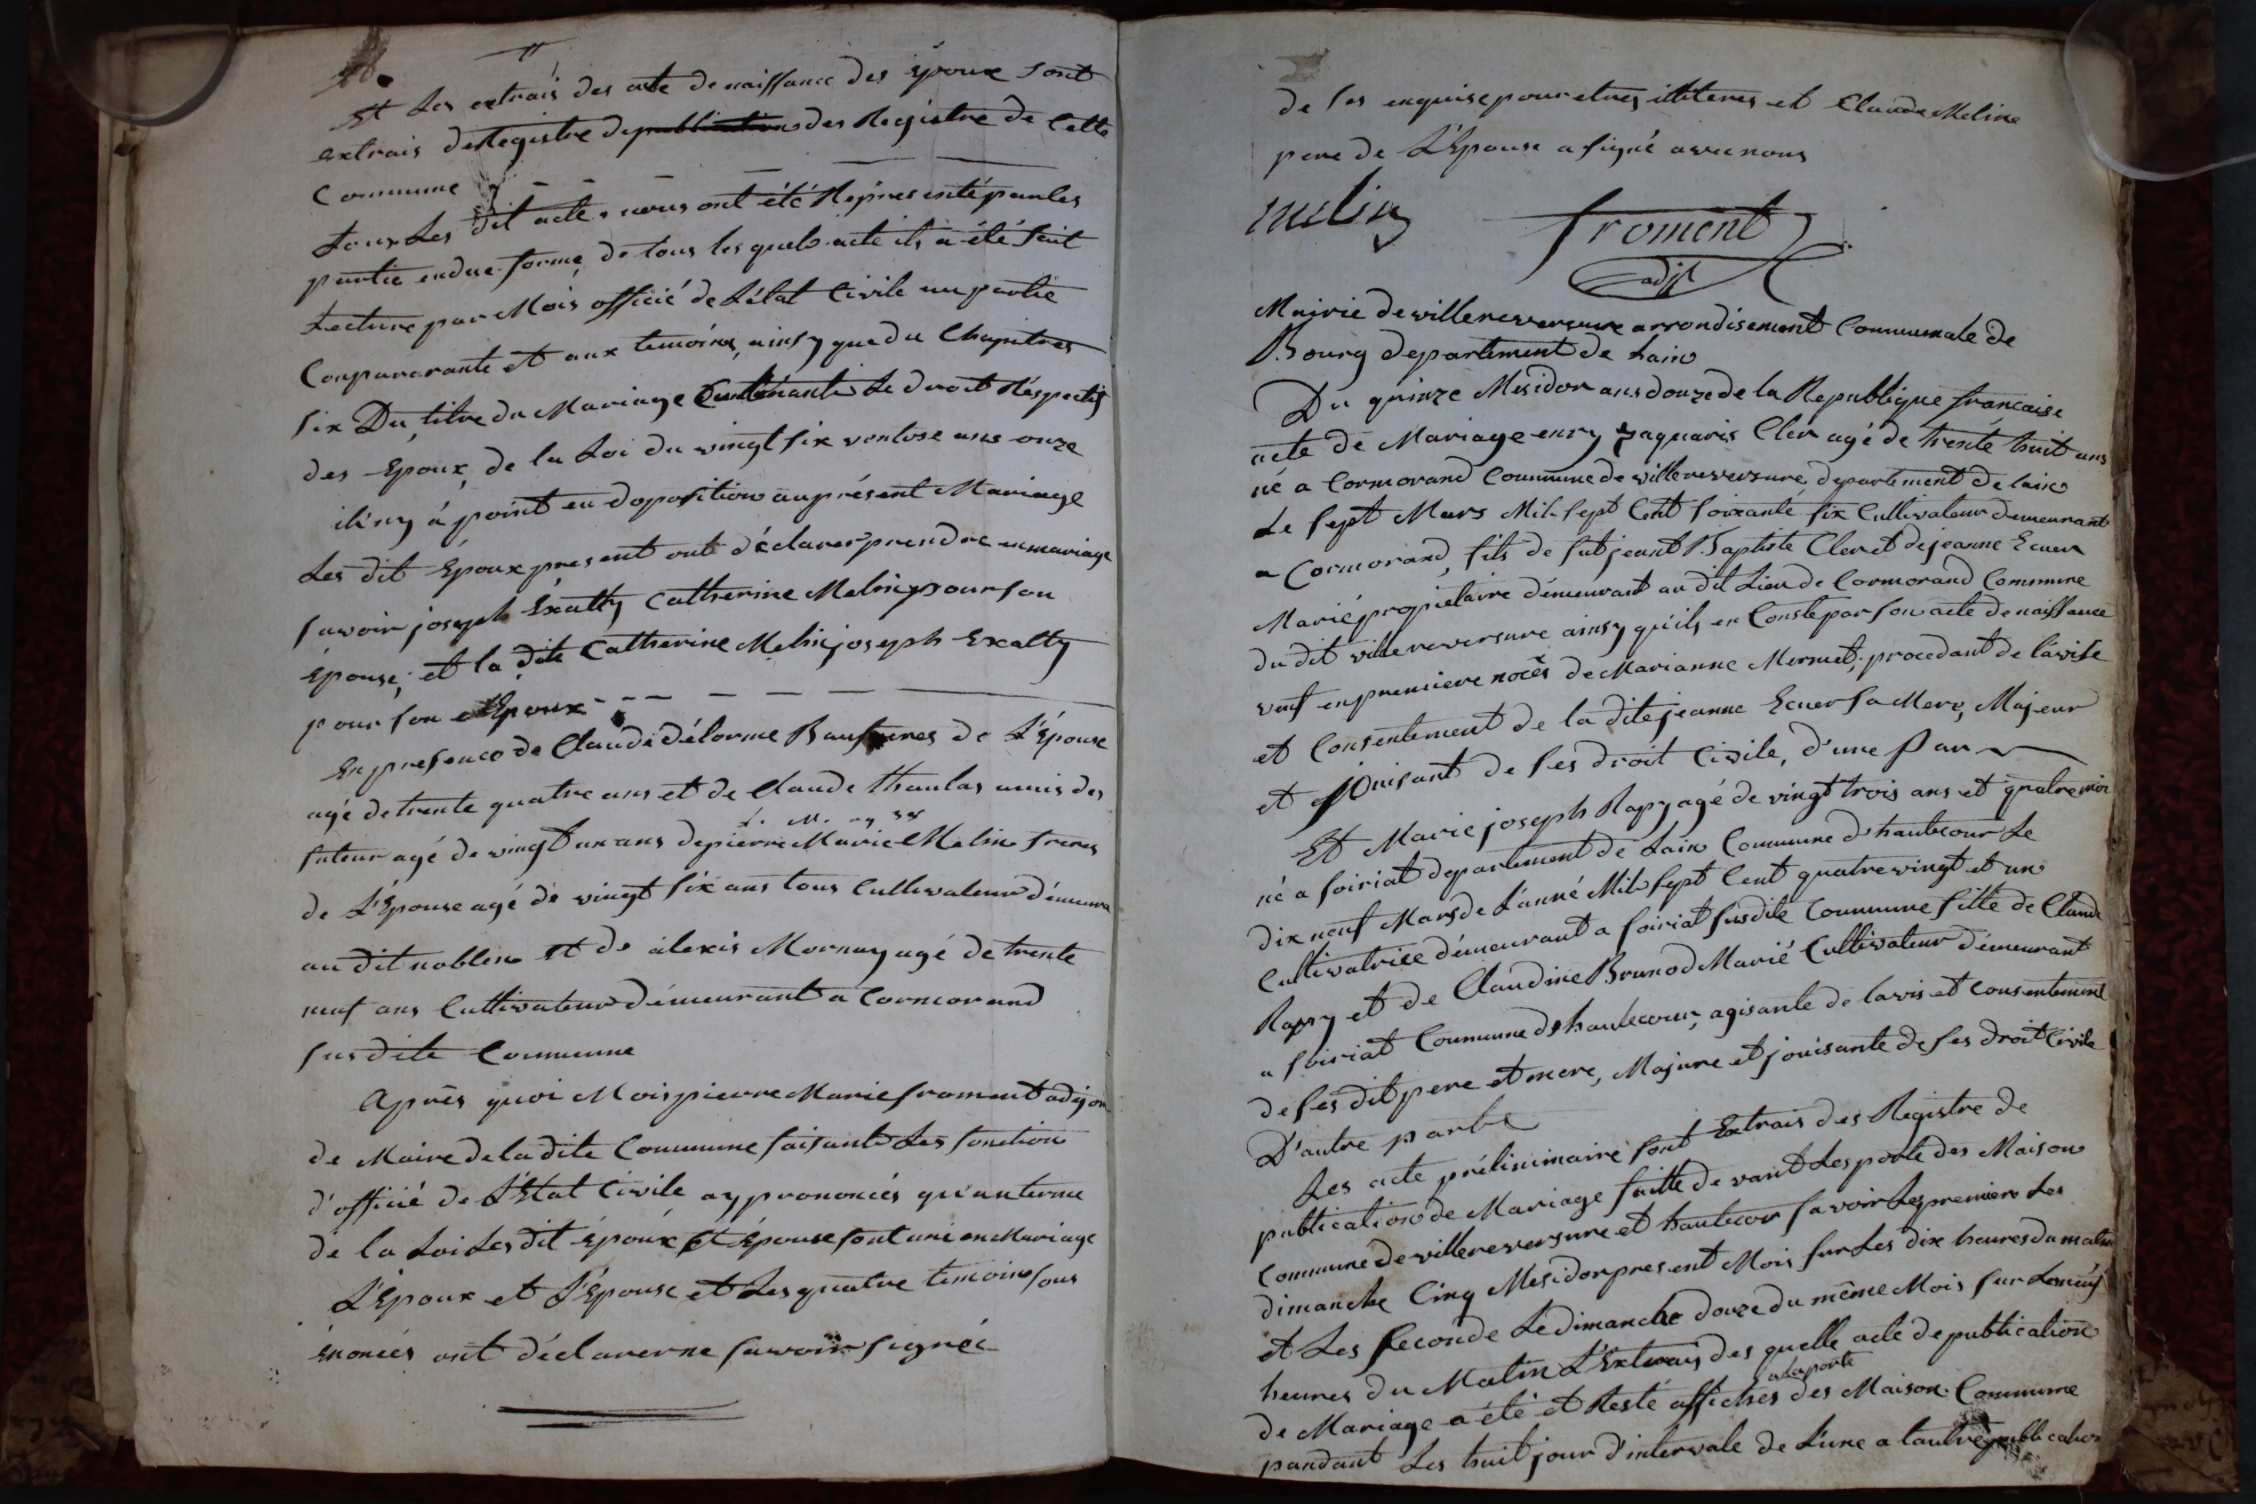 Et Les extrais des acte de naissance des Époux sont
extrais de Registre de publication des Registre de Cette
Commune
tous Les dit acte nous ont été Représenté par les
partie endue forme, de tous les quels acte ils a été fait
Lecture par Mois officié de L'état Civile au partie
Comparorante et aux temoins, ainsy que du Chapitres
six Du titre du Mariage Contenante Le droit Réspectif
des Epoux, de la Loi du vingt six ventose ans onze
il ny à point eu doposition au présent Mariage
Les dit Époux present ont déclarer prendre en mariage
savoir joseph Exalty Catherine Melin pour son
Epouse; et la dite Catherine Melin joseph Exalty
pour son Epoux
En presence de Claude délorme Baufreres de L'Épouse
agé de trente quatre ans et de Claude thaulas amis des
futeur agé de vingt un ans de pierre Marie Melin freres
de L'Épouse agé de vingt six ans tous Cultivateur démeura
au dit noblens et de alexis Mornay agé de trente
neuf ans Cultivateur démeurant a Cormorand
sus dite Commune
Après quoi Mois pierre Marie froment adjoin
de Maire de la dite Commune faisante Les fonction
d'officié de L'Etat Civile ay prononcés qu'au terme
de la Loi Les dit époux et Épouse sont uni en Mariage
L'Epoux et L'Épouse et Les quatre temoins sous
énoncés ont déclarer ne savoir signée
de ses enquise pour etres illiteres et Claude Meline
pere de L'Epouse a signé avec nous
melin froment
adjt
Mairie de villereversure arrondisement Communale de
Bourg departement de Lain
Du quinze Mesidor ans douze de la Republique française
acte de Mariage enry jaquaris Cler agé de trente huit ans
né a Cormorand Commune de villereversure departement de lain
Le sept Mars Mil sept Cent soixante six Cultivateur demeurant
a Cormorand, fils de fut jeant Baptiste Cler et de jeanne Ecuer
Marié propiétaire démeurant au dit Lieu de Cormorand Commune
du dit villereversure ainsy qu'ils en Conste par son acte de naissance
veuf en premiere noces de Marianne Mernuet, procedant de l'avise
et Consentement de la dite jeanne Ecuer sa Mere, Majeur
et jouisant de ses droit Civile, d'une Par
Et Marie joseph Rapy agé de vingt trois ans et quatre moi
né a soiriat departement de Lain Commune d'hautecour Le
dix neuf Mars de L'anné Mil sept Cent quatre vingt et un
Cultivatrice démeurant a soiriat susdite Commune fille de Claude
Rapy et de Claudine Brunod Marié Cultivateur démeurant
a soiriat Commune d'hautecour, agisante de lavis et consentement
de ses dit pere et mere, Majure et jouisante de ses droit Civile
D'autre parte
Les acte préliminaire sont Extrais des Registre de
publication de Mariage faitte de vant Les porte des Maison
Commune de villereversure et hautecour savoir Les premiere Les
dimanche Cinq Mesidor present Mois sur Les dix heures du matin
et Les seconde Le dimanche douze du même Mois sur Les neuf
heures du Matin L'Extrais des quelle acte de publication
de Mariage a été et Resté affiches a la porte des Maison Commune
pandant Les huit jour d'intervale de L'une a l'autre publication